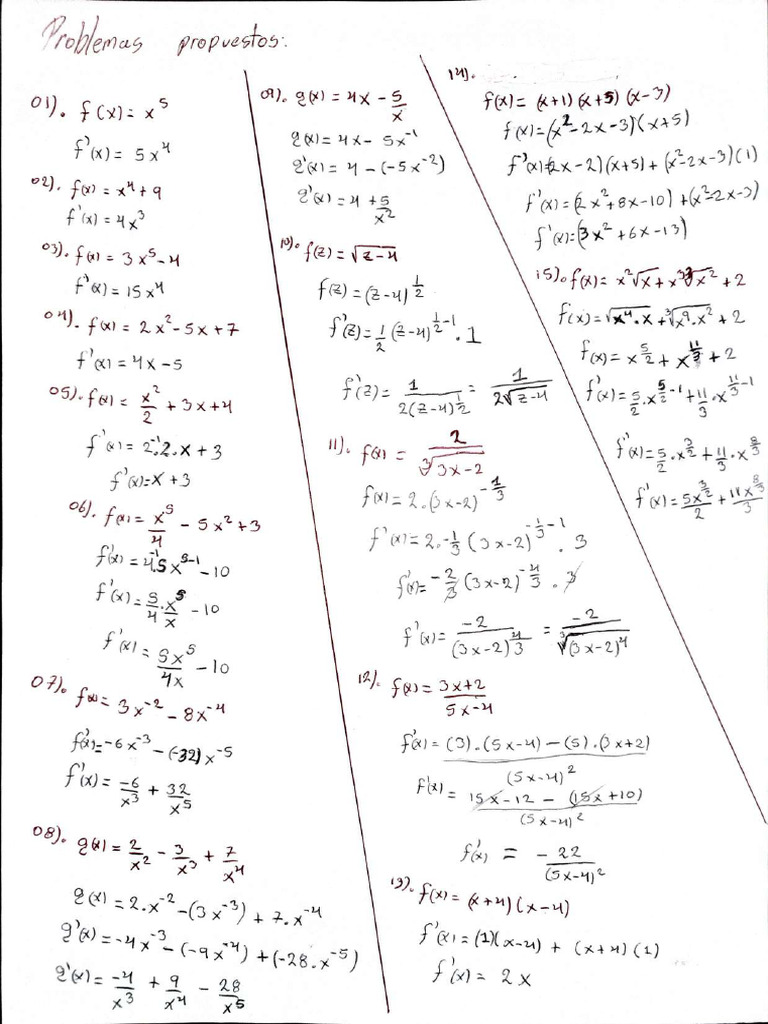 Problemas propuestos:
01). f(x) = x^5
f'(x) = 5x^4
02). f(x) = x^4 + 9
f'(x) = 4x^3
03). f(x) = 3x^5 - 4
f'(x) = 15x^4
04). f(x) = 2x^2 - 5x + 7
f'(x) = 4x - 5
05). f(x) = x^2/2 + 3x + 4
f'(x) = 2^-1.2.x + 3
f'(x) = x + 3
06). f(x) = x^5/4 - 5x^2 + 3
f'(x) = 4^-1.5x^5-1 - 10
f'(x) = 5/4 . x^5/x - 10
f'(x) = 5x^5/4x - 10
07). f(x) = 3x^-2 - 8x^-4
f'(x) = -6x^-3 - (-32)x^-5
f'(x) = -6/x^3 + 32/x^5
08). g(x) = 2/x^2 - 3/x^3 + 7/x^4
g(x) = 2.x^-2 - (3x^-3) + 7.x^-4
g'(x) = -4x^-3 - (-9x^-4) + (-28.x^-5)
g'(x) = -4/x^3 + 9/x^4 - 28/x^5
09). g(x) = 4x - 5/x
g(x) = 4x - 5x^-1
g'(x) = 4 - (-5x^-2)
g'(x) = 4 + 5/x^2
10). f(z) = √(z-4)
f(z) = (z-4)^1/2
f'(z) = 1/2 (z-4)^1/2-1 . 1
f'(z) = 1/2(z-4)^1/2 = 1/2√(z-4)
11). f(x) = 2/∛(3x-2)
f(x) = 2.(3x-2)^-1/3
f'(x) = 2.-1/3 (3x-2)^-1/3-1 . 3
f'(x) = -2/3 (3x-2)^-4/3 . 3
f'(x) = -2/(3x-2)^4/3 = -2/∛(3x-2)^4
12). f(x) = 3x+2/5x-4
f'(x) = (3).(5x-4) - (5).(3x+2)/(5x-4)^2
f'(x) = 15x-12 - (15x+10)/(5x-4)^2
f'(x) = -22/(5x-4)^2
13). f(x) = (x+4)(x-4)
f'(x) = (1)(x-4) + (x+4)(1)
f'(x) = 2x
14).
f(x) = (x+1)(x+5)(x-3)
f(x) = (x^2-2x-3)(x+5)
f'(x) = (2x-2)(x+5) + (x^2-2x-3)(1)
f'(x) = (2x^2+8x-10) + (x^2-2x-3)
f'(x) = (3x^2+6x-13)
15). f(x) = x^2√x + x^3∛x^2 + 2
f(x) = √(x^4.x) + ∛(x^9.x^2) + 2
f(x) = x^5/2 + x^11/3 + 2
f'(x) = 5/2.x^5/2-1 + 11/3.x^11/3-1
f'(x) = 5/2.x^3/2 + 11/3.x^8/3
f'(x) = 5x^3/2/2 + 11x^8/3/3